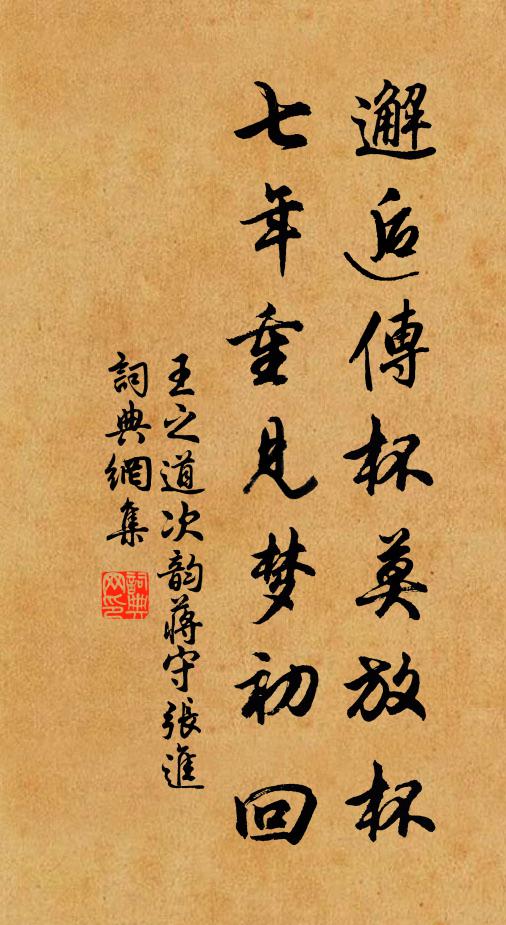 邂逅傳杯莫放杯
七年重見梦初回
王之道次韵蔣守張進
詞典網集
詞典
网印